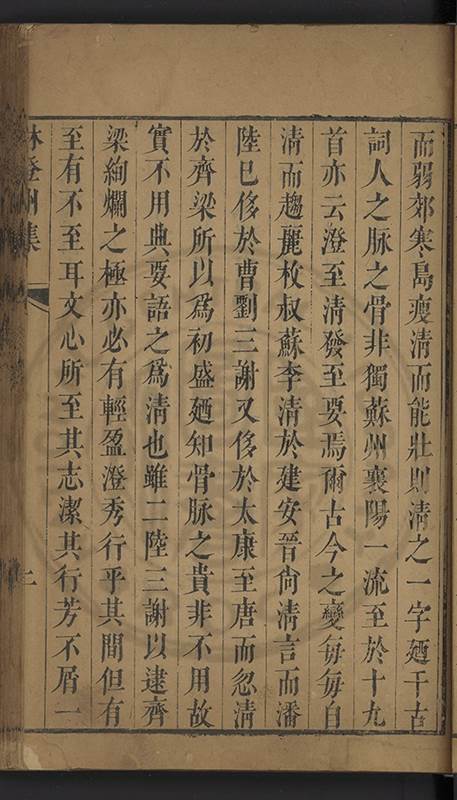 而弱郊寒島瘦清而能壯則清之一字廼千古
詞人之脉之骨非獨蘇州襄陽一流至於十九
首亦云澄至清發至要焉爾古今之變每每自
清而趨麗枚叔蘇李清於建安晉尙清言而潘
陸已侈於曹劉三謝又侈於太康至唐而忽清
於齊梁所以爲初盛廼知骨脉之貴非不用故
實不用典要語之爲清也雖二陸三謝以逮齊
梁絢爛之極亦必有輕盈澄秀行乎其間但有
至有不至耳文心所至其志潔其行芳不屑一
林登州集
二